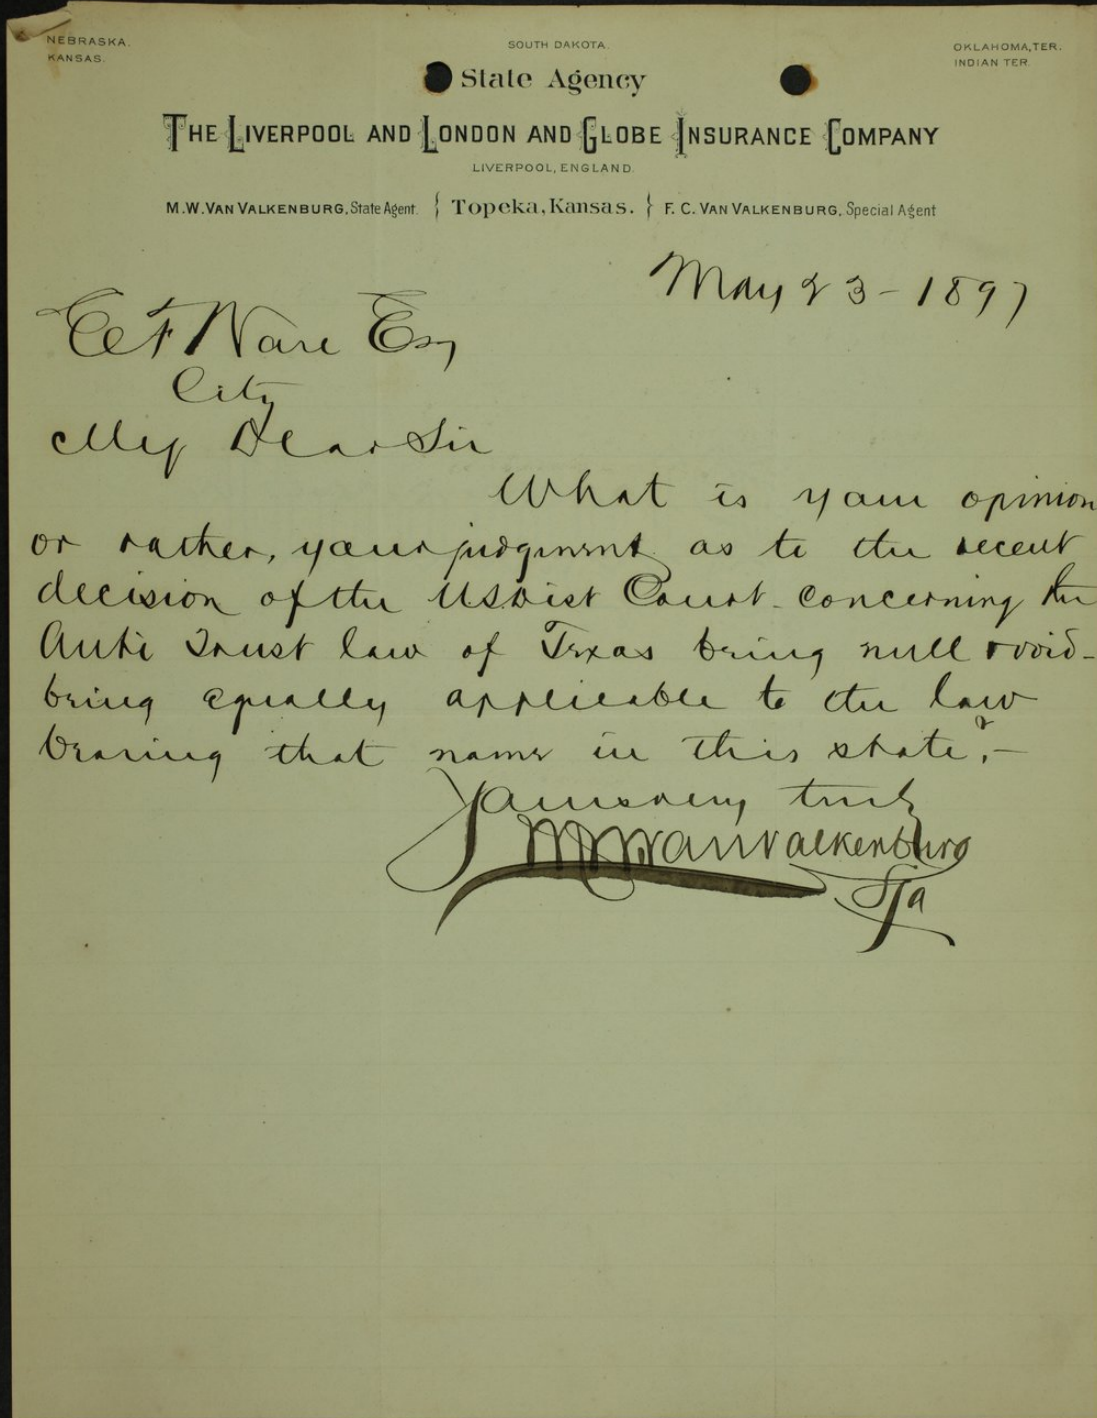 NEBRASKA.
KANSAS.
SOUTH DAKOTA.
OKLAHOMA, TER.
INDIAN TER.
State Agency
THE LIVERPOOL AND LONDON AND GLOBE INSURANCE COMPANY
LIVERPOOL, ENGLAND.
M. W. VAN VALKENBURG, State Agent. { Topeka, Kansas. } F. C. VAN VALKENBURG, Special Agent
May 23 - 1897
Ware Esq
City
My Dear Sir
What is your opinion
or rather, your judgment as to the recent
decision of the US Dist Court - concerning the
Anti Trust law of Texas being null & void -
being equally applicable to the law
bearing that name in this state? -
Yours very truly
MW Van Valkenburg
SA